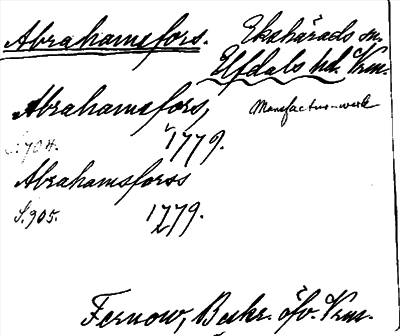 Abrahamsfors. Ekshärads sn.
Elfdals hd. Vrm.
Abrahamsfors, Manufactur-werk
S. 704. 1779.
Abrahamsforss
S. 905. 1779.
Fernow, Beskr. öfv. Vrm.